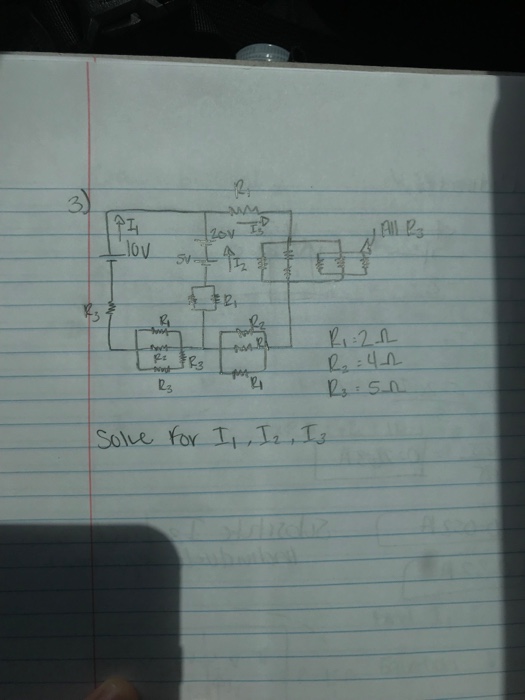 3)
R₁
I₁
10V
20V
I₃
5V
I₂
All R₃
R₁
R₃
R₁
R₂
R₃
R₃
R₂
R₁
R₁ = 2 Ω
R₂ = 4 Ω
R₃ = 5 Ω
Solve for I₁, I₂, I₃